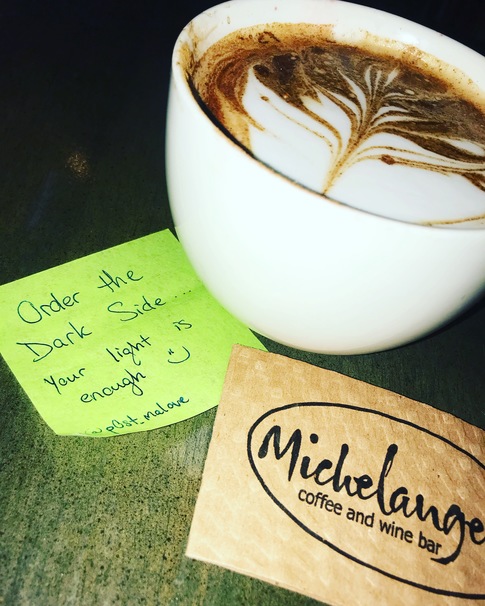 Order the
Dark Side....
Your light is
enough :)
@p0st_malove
Michelange
coffee and wine bar